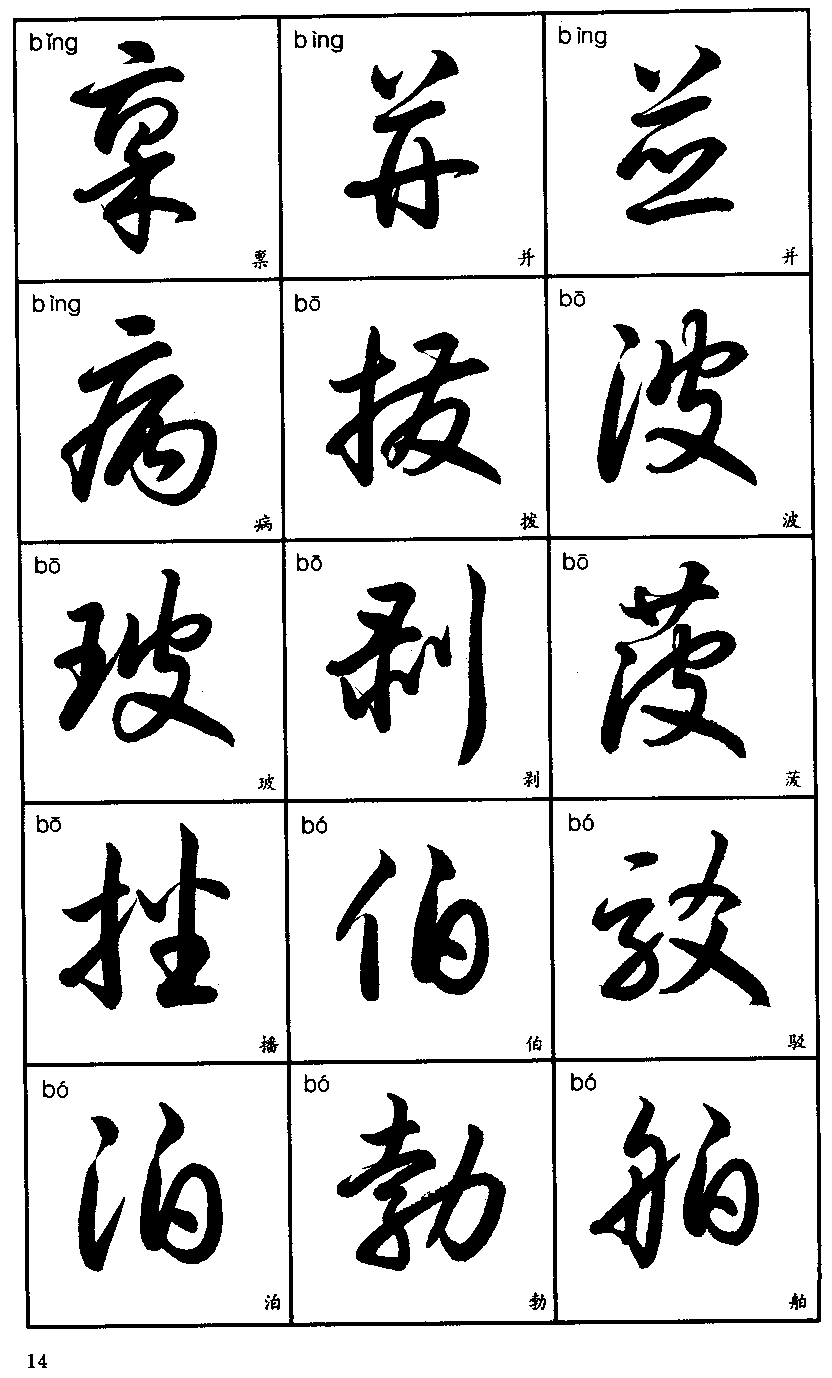 bǐng bìng bìng
禀 并 並
禀 并 并
bìng bō bō
病 拨 波
病 拨 波
bō bō bō
玻 剥 菠
玻 剥 菠
bō bó bó
播 伯 驳
播 伯 驳
bó bó bó
泊 勃 舶
泊 勃 舶
14